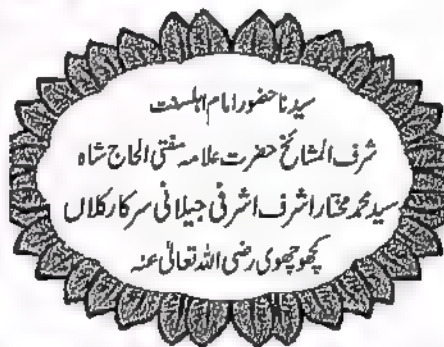 سیدنا حضور امام اہلسنت
شرف المشائخ حضرت علامہ مفتی الحاج شاہ
سید محمد مختار اشرف اشرفی جیلانی سرکار کلاں
کچھوچھوی رضی اللہ تعالیٰ عنہ